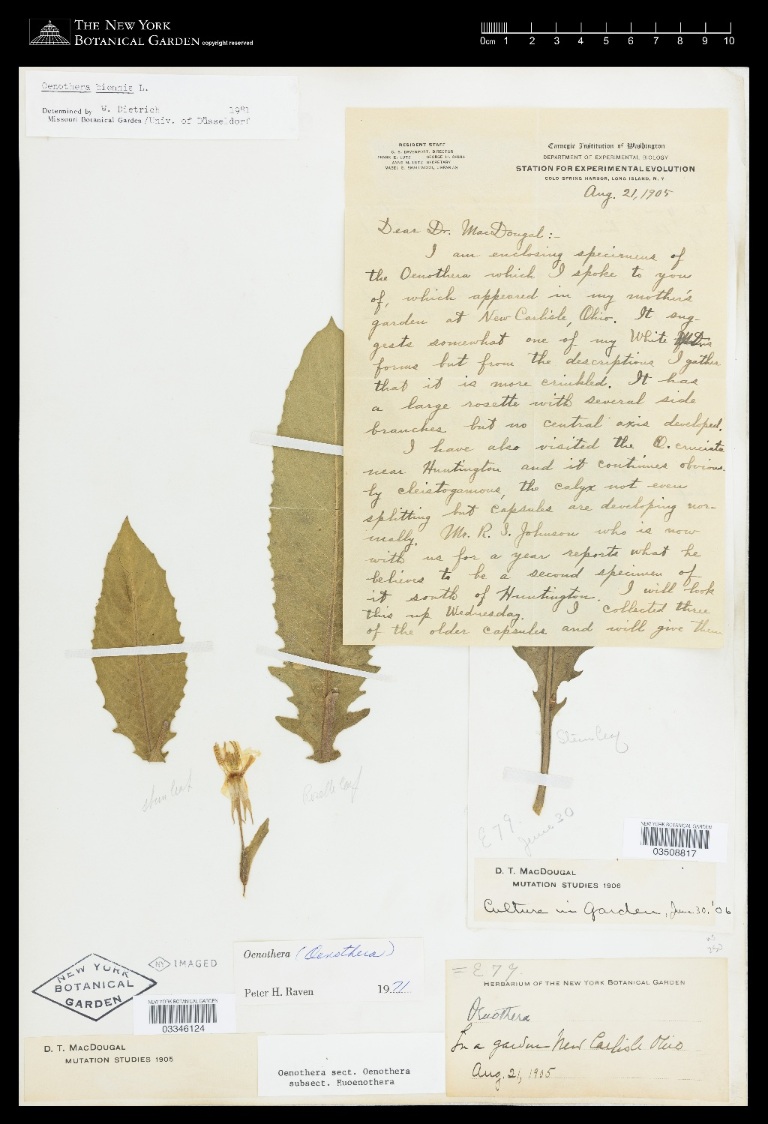 THE NEW YORK
BOTANICAL GARDEN copyright reserved
0cm 1 2 3 4 5 6 7 8 9 10
Oenothera biennis L.
Determined by W. Dietrich 1981
Missouri Botanical Garden/Univ. of Düsseldorf
RESIDENT STAFF
Carnegie Institution of Washington
DEPARTMENT OF EXPERIMENTAL BIOLOGY
STATION FOR EXPERIMENTAL EVOLUTION
COLD SPRING HARBOR, LONG ISLAND, N. Y.
Aug. 21, 1905
Dear Dr. MacDougal:-
I am enclosing specimens of
the Oenothera which I spoke to you
of, which appeared in my mother's
garden at New Carlisle, Ohio. It sug-
gests somewhat one of my White
forms but from the descriptions I gather
that it is more crinkled. It has
a large rosette with several side
branches but no central axis developed.
I have also visited the O. cruciata
near Huntington and it continues obvious-
ly cleistogamous, the calyx not even
splitting but capsules are developing nor-
mally. Mr. R. I. Johnson who is now
with us for a year reports what he
believes to be a second specimen of
it south of Huntington. I will look
this up Wednesday. I collected three
of the older capsules and will give them
Stem leaf
stem leaf
Rosette leaf
E79
June 30
NEW YORK BOTANICAL GARDEN
03508817
D. T. MACDOUGAL
MUTATION STUDIES 1906
Culture in Garden, June 30, '06
NEW YORK
BOTANICAL
GARDEN
NY IMAGED
NEW YORK BOTANICAL GARDEN
03346124
Oenothera (Oenothera)
Peter H. Raven 1971
D. T. MACDOUGAL
MUTATION STUDIES 1905
Oenothera sect. Oenothera
subsect. Euoenothera
= E 79.
HERBARIUM OF THE NEW YORK BOTANICAL GARDEN
Oenothera
In a garden New Carlisle Ohio
Aug. 21, 1905